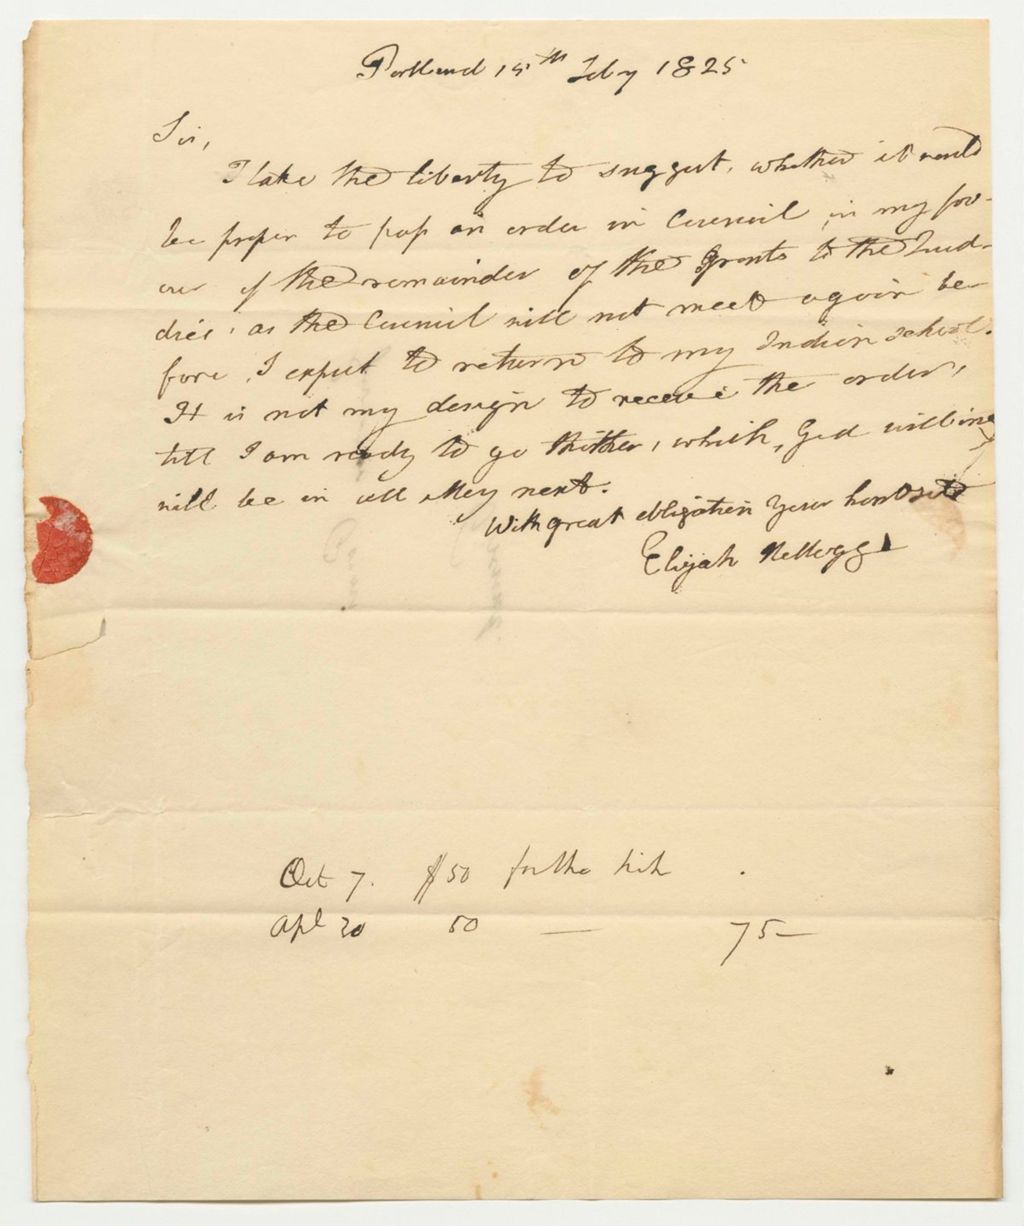 Portland 15th Feby 1825
Sir,
I take the liberty to suggest, whether it would
be proper to pass an order in Council, in my fav-
our of the remainder of the Grants to the
as the Council will not meet again be-
fore, I expect to return to my Indian school.
It is not my design to receive the order,
till I am ready to go thither, which, God willing
will be in all May next.
With great obligation your
Elijah Kellogg
Oct 7. $50 for the
Apl 20 50 — 75—